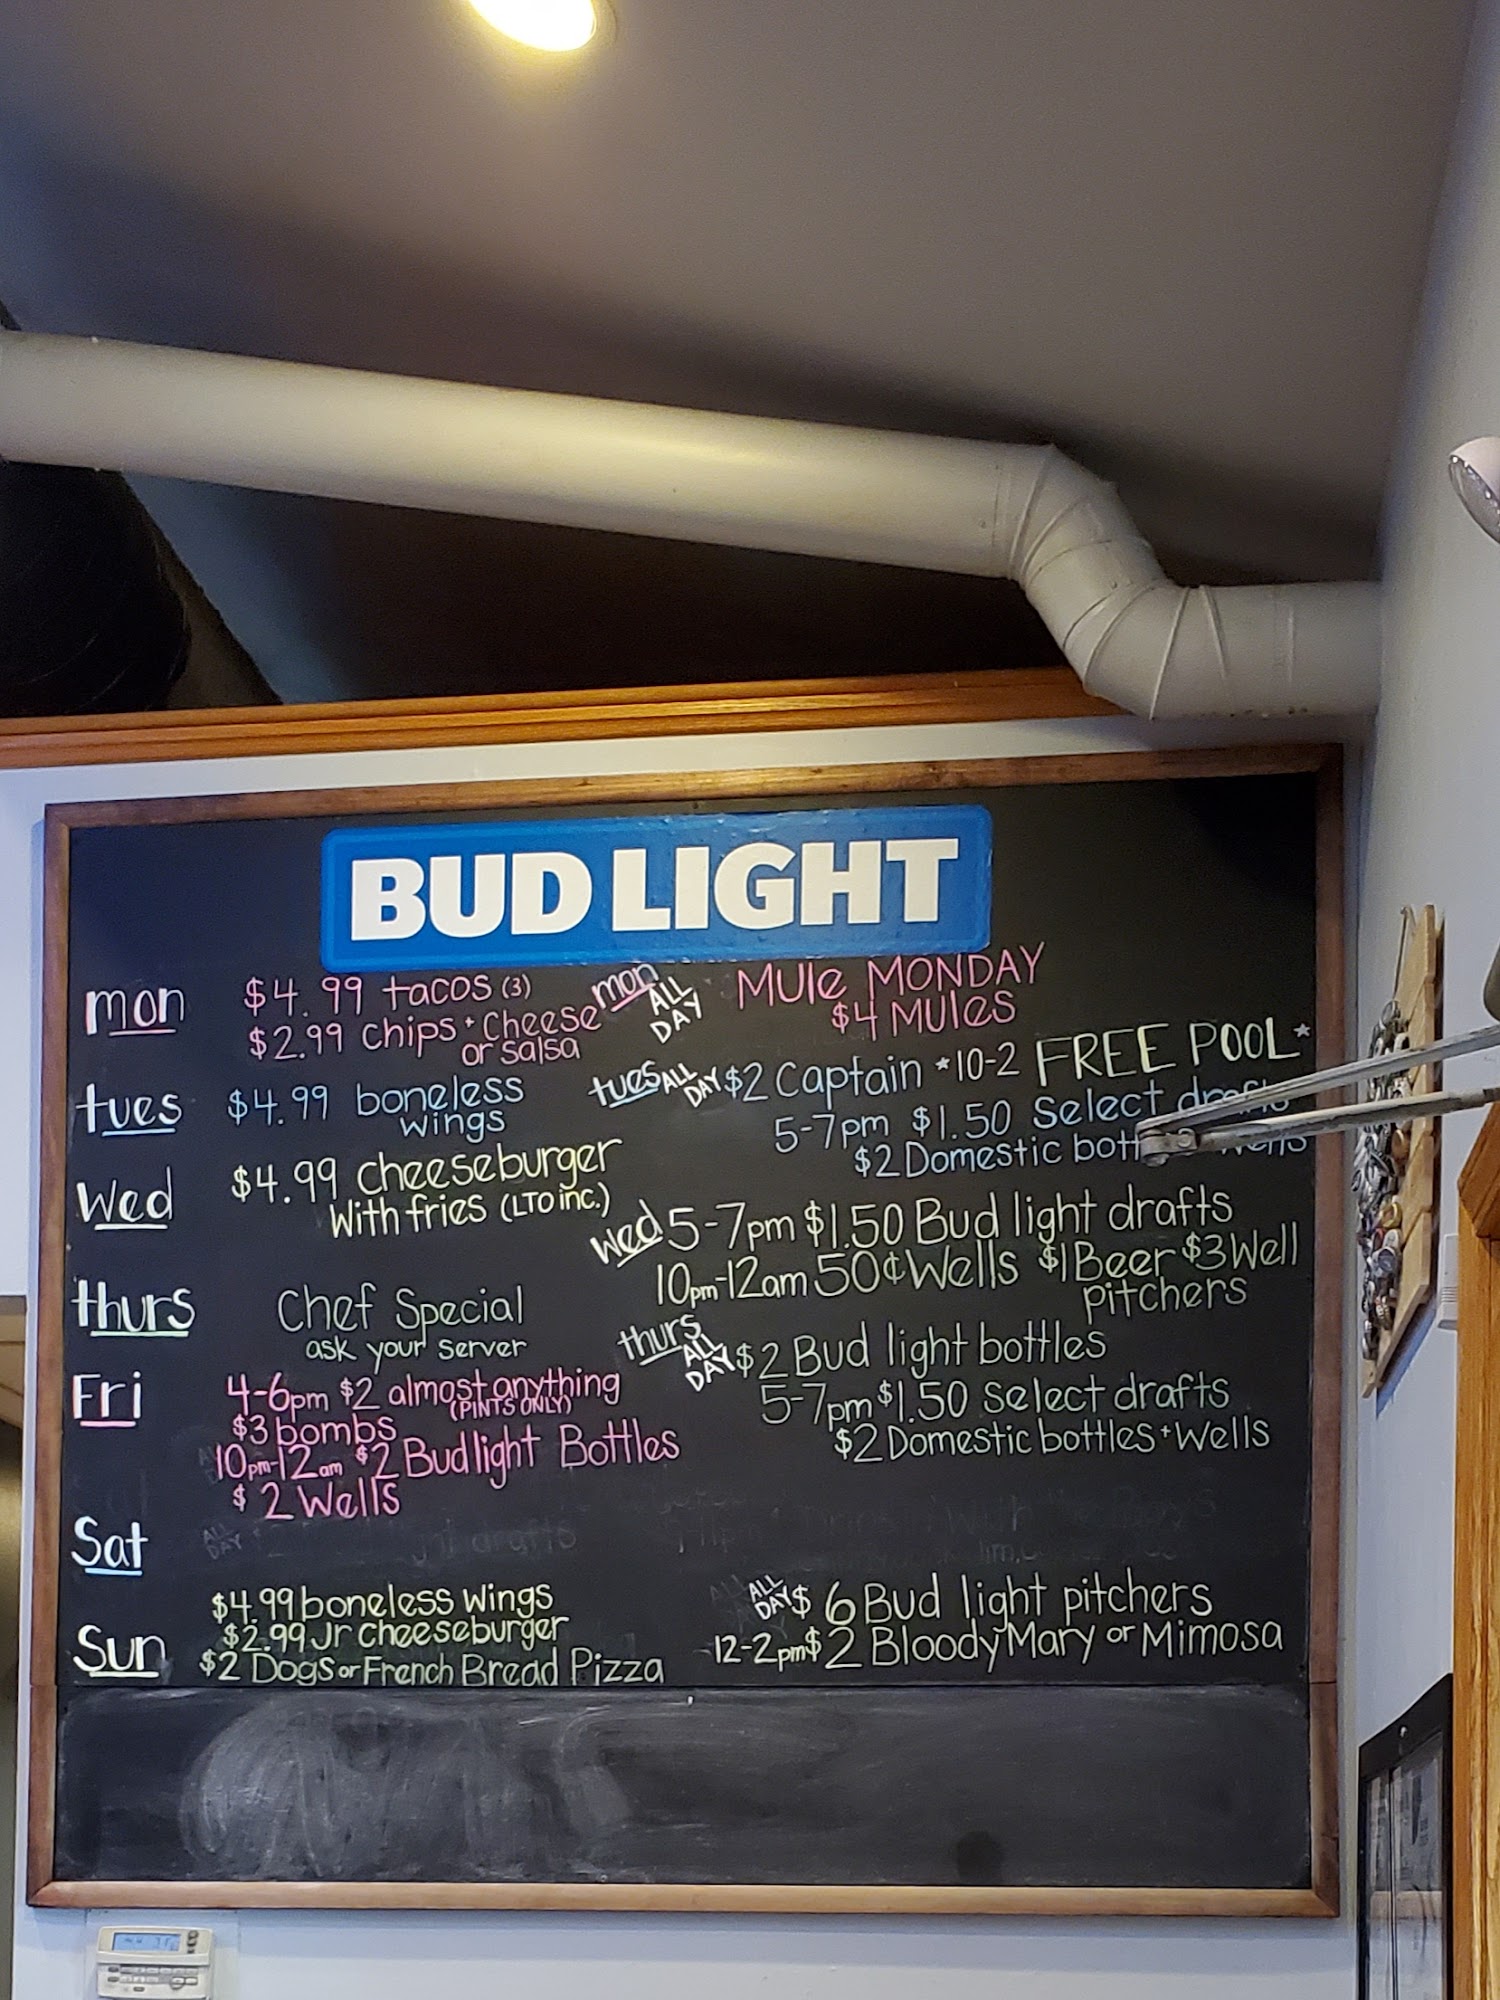 BUD LIGHT
mon $4.99 tacos (3)
$2.99 chips + Cheese
or salsa
mon ALL DAY MULE MONDAY
$4 MULES
tues $4.99 boneless
wings
tues ALL DAY $2 Captain *10-2 FREE POOL*
5-7pm $1.50 Select drafts
$2 Domestic Wells
Wed $4.99 cheeseburger
With fries (LTO inc.)
Wed 5-7pm $1.50 Bud light drafts
10pm-12am 50¢ Wells $1 Beer $3 Well
pitchers
thurs Chef Special
ask your server
thurs ALL DAY $2 Bud light bottles
5-7pm $1.50 Select drafts
$2 Domestic bottles + Wells
Fri 4-6pm $2 almost anything
(PINTS ONLY)
$3 bombs
10pm-12am $2 Bud light Bottles
$2 Wells
Sat
Sun $4.99 boneless Wings
$2.99 Jr Cheeseburger
$2 Dogs or French Bread Pizza
ALL DAY $6 Bud light pitchers
12-2pm $2 Bloody Mary or Mimosa